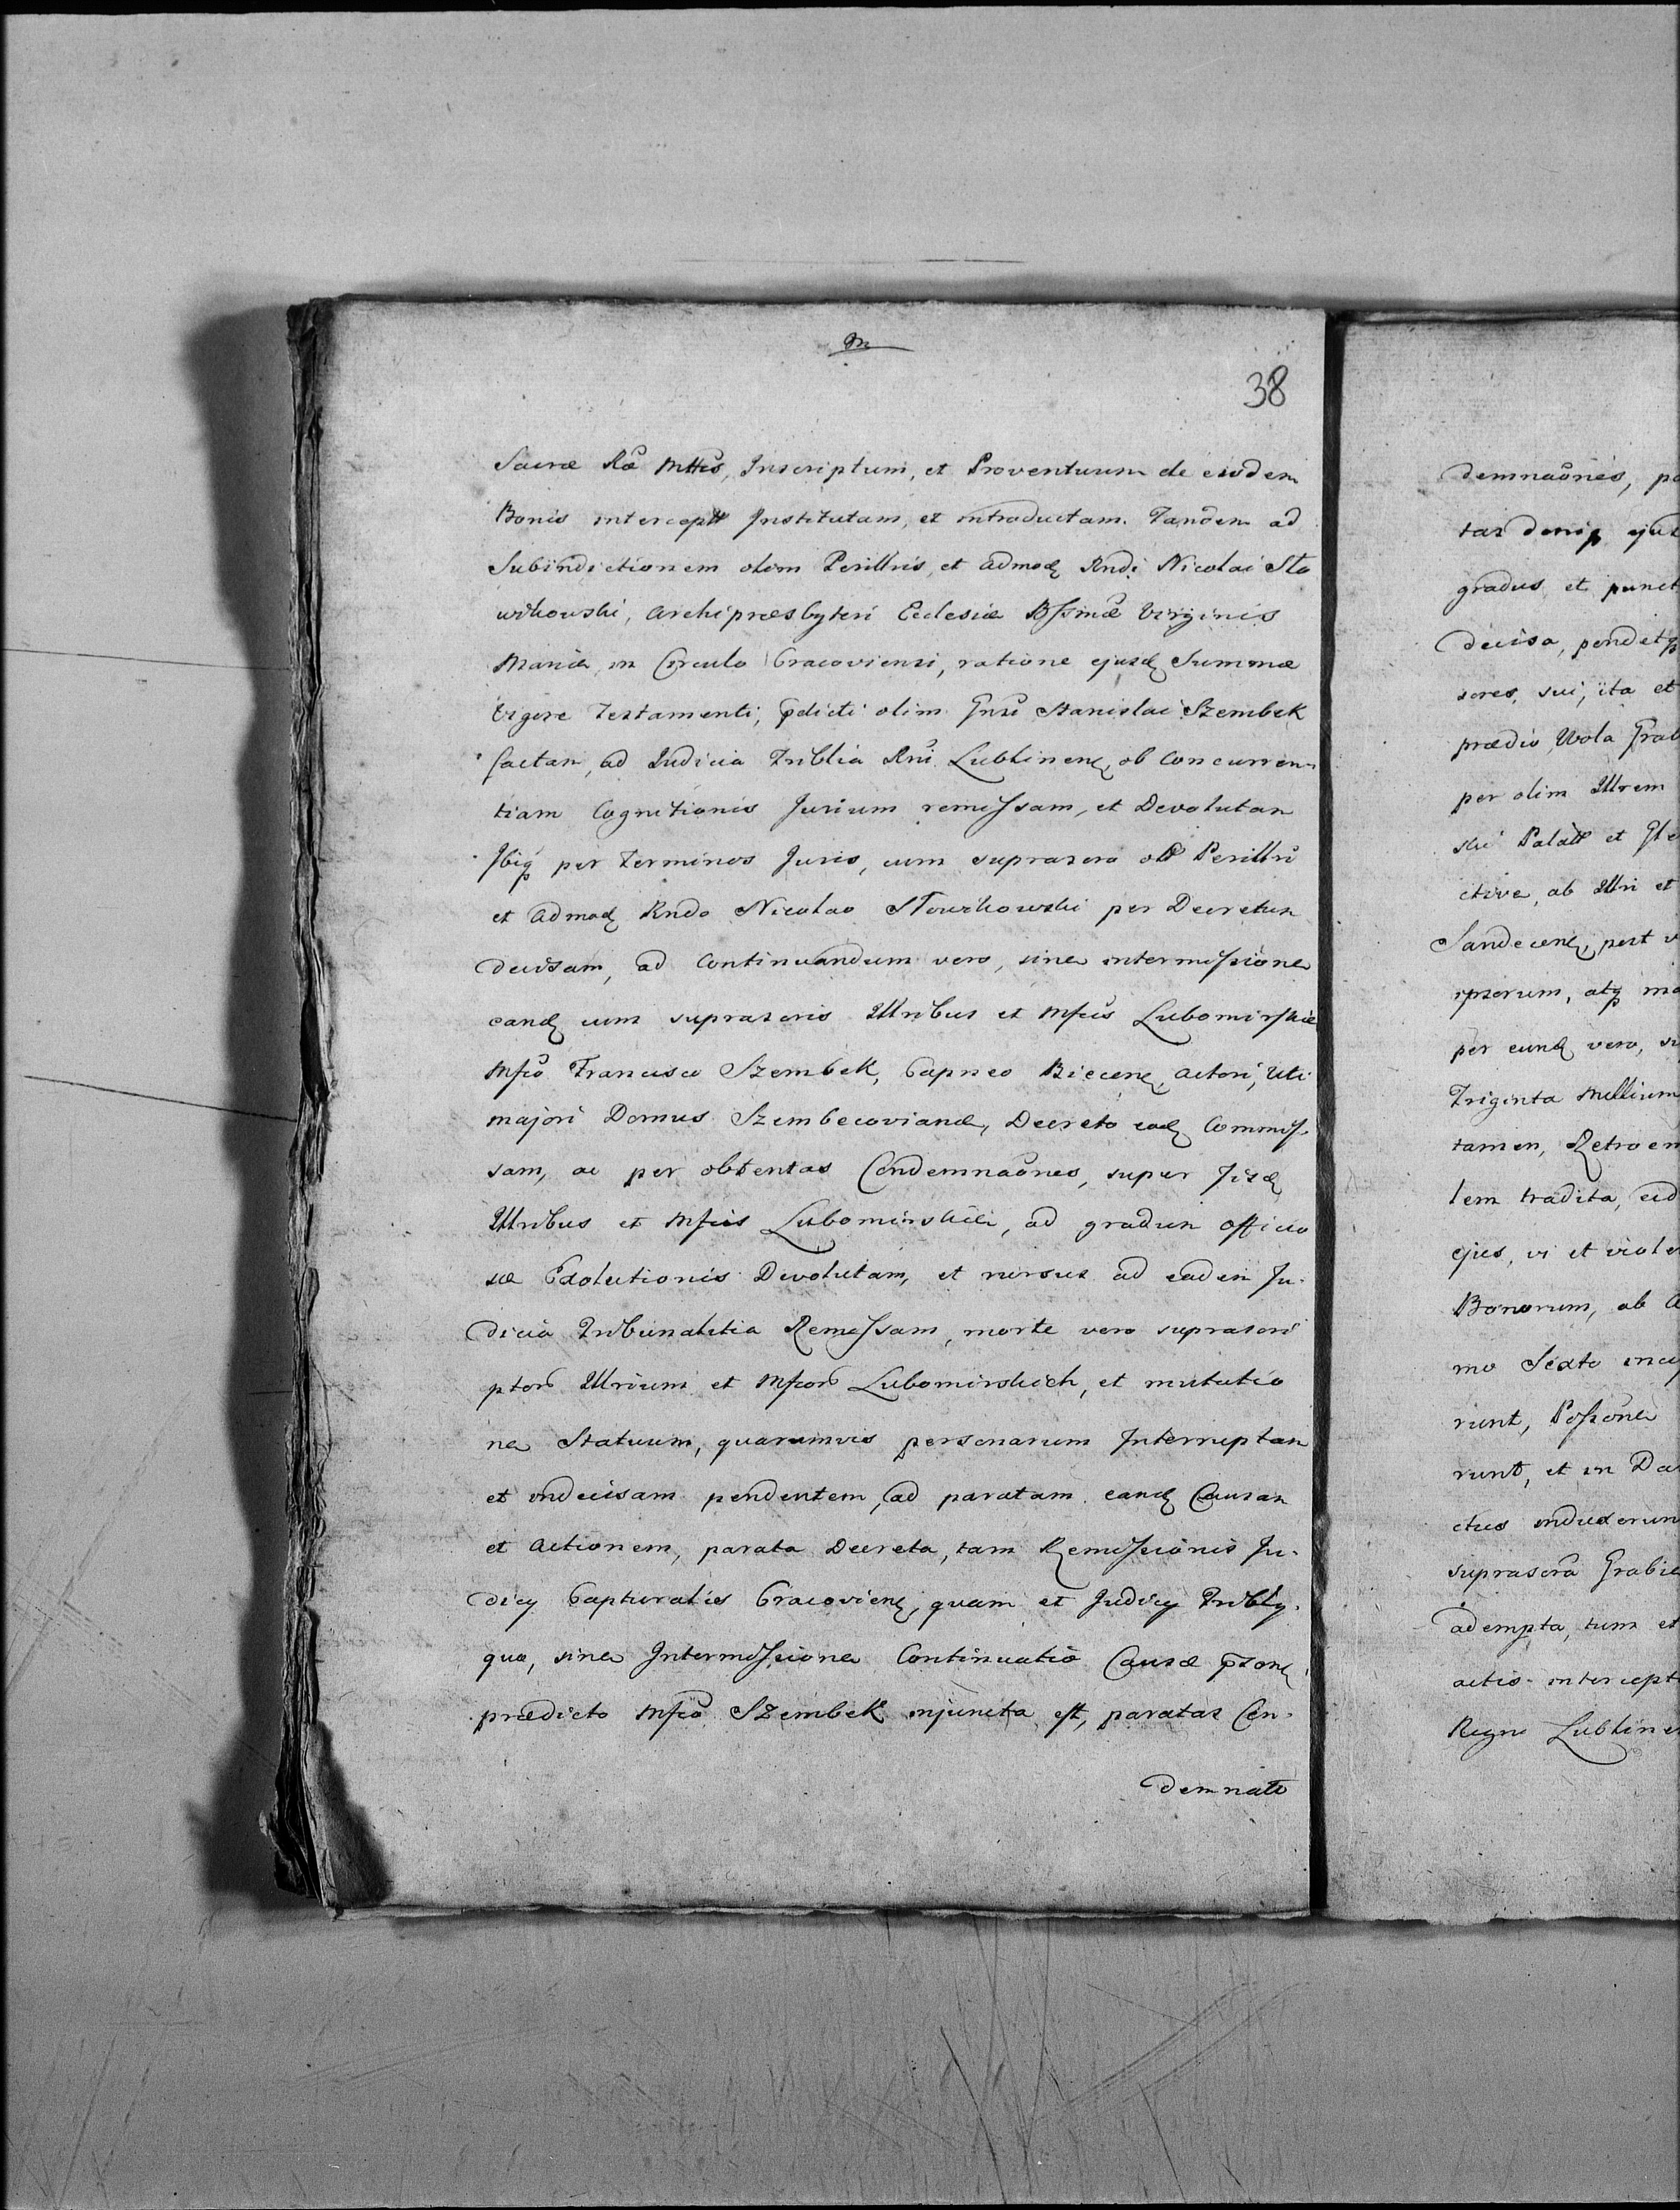 38
Sacræ Ræ Mttis, Inscriptum, et Proventuum de eisdem
Bonis intercept Institutam, et introductam. Tandem ad
Subindictionem olim Perillris, et admod Rndi Nicolai Sło
wikowski, Archipræsbyteri Ecclesiæ Bssmæ Virginis
Mariæ, in Circulo Cracoviensi, ratione ejusd Summæ
Vigore Testamenti, pdicti olim Gnsi Stanislai Szembek
factam, ad Judicia Triblia Rni Lublinen, ob Concurren-
tiam Cognitionis Jurium remissam, et Devolutam
Ibiq per Terminos Juris, cum suprascro olim Perillri
et admod Rndo Nicolao Słowikowski per Decretum
decisam, ad Continuandum vero, sine intermissione
eand cum suprascris Illribus et Mfcis Lubomirskie
Mfco Francisco Szembek, Capneo Biecen, actori, Uti
majori Domus Szembecovianæ, Decreto eod Commis-
sam, ac per obtentas Condemnaones, super Iisd
Illribus et Mfcis Lubomirskie, ad gradum officio
sæ Exolutionis Devolutam, et rursus ad eadem Ju-
dicia Tribunalitia Remissam, morte vero suprascri
ptor Illrium et Mfcor Lubomirskich, et mutatio
ne Statuum, quarumvis personarum Interruptam
et indecisam pendentem, ad paratam eand Causam
et Actionem, parata Decreta, tam Remissionis Ju-
dicy Capturalis Cracovien, quam et Judicy Tribly
quo, sine Intermissione Continuatio Causæ pson
prædicto Mfco Szembek injuncta est, paratas Con-
demnato
demnaones, pa
tas deniq ejus
gradus et punct
decisa, pendetq
sores, sui, ita et
prædio, Wola Grab
per olim Illrem
ski Palatt et Gle
ctive, ab Illri et
Sandecen, post v
ipsorum, atq ma
per eund vero, si
Triginta Millium
tamen, Retroem
lem tradita, eid
ejus, vi et viole
Bonorum, ab A
mo Sexto incip
runt, Possone
runt, et in Da
ctus induxerun
suprascra Grabie
adempta, tum et
actis intercept
Regni Lubline